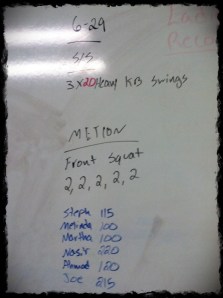 6-29
S/S
3x20 Heavy KB Swings
METCON
Front Squat
2, 2, 2, 2, 2
Steph 115
Melinda 100
Martha 100
Nasir 220
120
Joe 215